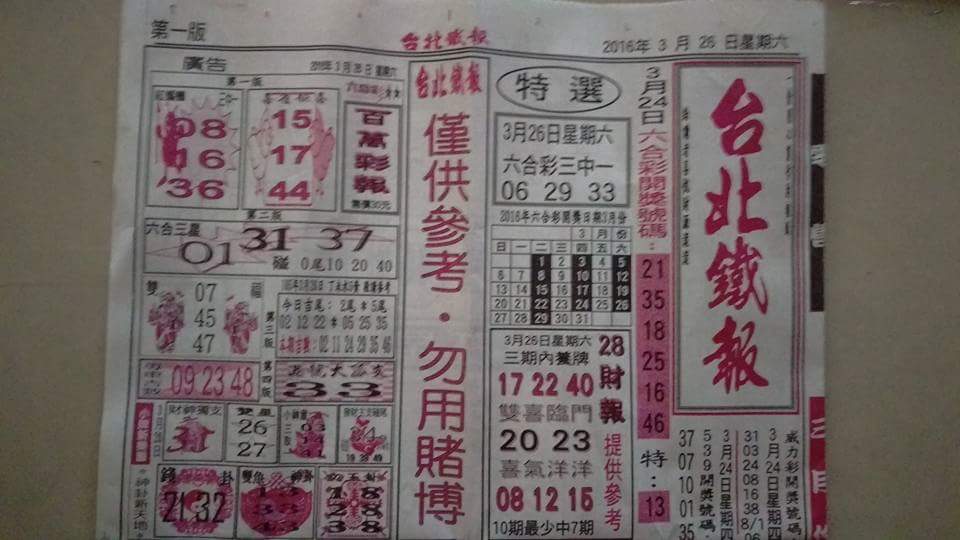 第一版
台北鐵報
2016年3月26日星期六
廣告
第一版
08
16
36
15
17
44
百萬彩報
第二版
六合三星
01 31 37
碰 0尾10 20 40
雙福
07
45
47
第三版
今日吉尾：2尾＊5尾
02 12 22＊05 25 35
02 11 24 29 35 46
09 23 48
第四版
33
財神獨支
31
雙星
26
27
3月26日
神卦新天地
錢卦
21 32
雙魚
13
33
43
18
28
38
台北鐵報
僅供參考・勿用賭博
特選
3月26日星期六
六合彩三中一
06 29 33
2016年六合彩開獎日期3月份
3月份
日 一 二 三 四 五 六
1 2 3 4 5
6 7 8 9 10 11 12
13 14 15 16 17 18 19
20 21 22 23 24 25 26
27 28 29 30 31
3月26日星期六
三期內養牌
17 22 40
雙喜臨門
20 23
喜氣洋洋
08 12 15
10期最少中7期
28財報提供參考
3月24日六合彩開獎號碼：
21
35
18
25
16
46
特：
13
台北鐵報
威力彩開獎號碼
3月24日星期四
31
03
24
08
16
38
8/1
3月24日星期四
539開獎號碼
37
07
10
01
35